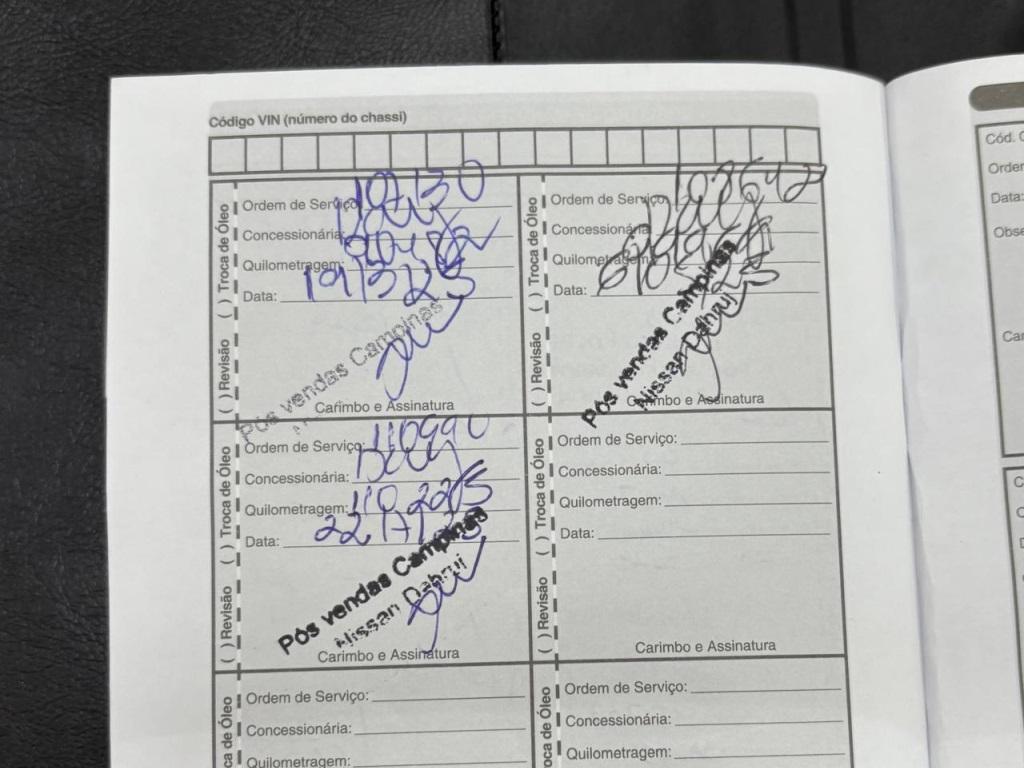 Código VIN (número do chassi)
( ) Revisão ( ) Troca de Óleo
Ordem de Serviço: 107130
Concessionária:
Quilometragem:
Data: 19/3/25
Pós vendas Campinas
Carimbo e Assinatura
( ) Revisão ( ) Troca de Óleo
Ordem de Serviço: 108642
Concessionária:
Quilometragem:
Data:
Pós vendas Campinas
Nissan Dahruj
Carimbo e Assinatura
( ) Revisão ( ) Troca de Óleo
Ordem de Serviço: 110990
Concessionária:
Quilometragem: 110.225
Data:
Pós vendas Campinas
Nissan Dahruj
Carimbo e Assinatura
( ) Revisão ( ) Troca de Óleo
Ordem de Serviço:
Concessionária:
Quilometragem:
Data:
Carimbo e Assinatura
ca de Óleo
Ordem de Serviço:
Concessionária:
Quilometragem:
oca de Óleo
Ordem de Serviço:
Concessionária:
Quilometragem:
Cód.
Orde
Data:
Obse